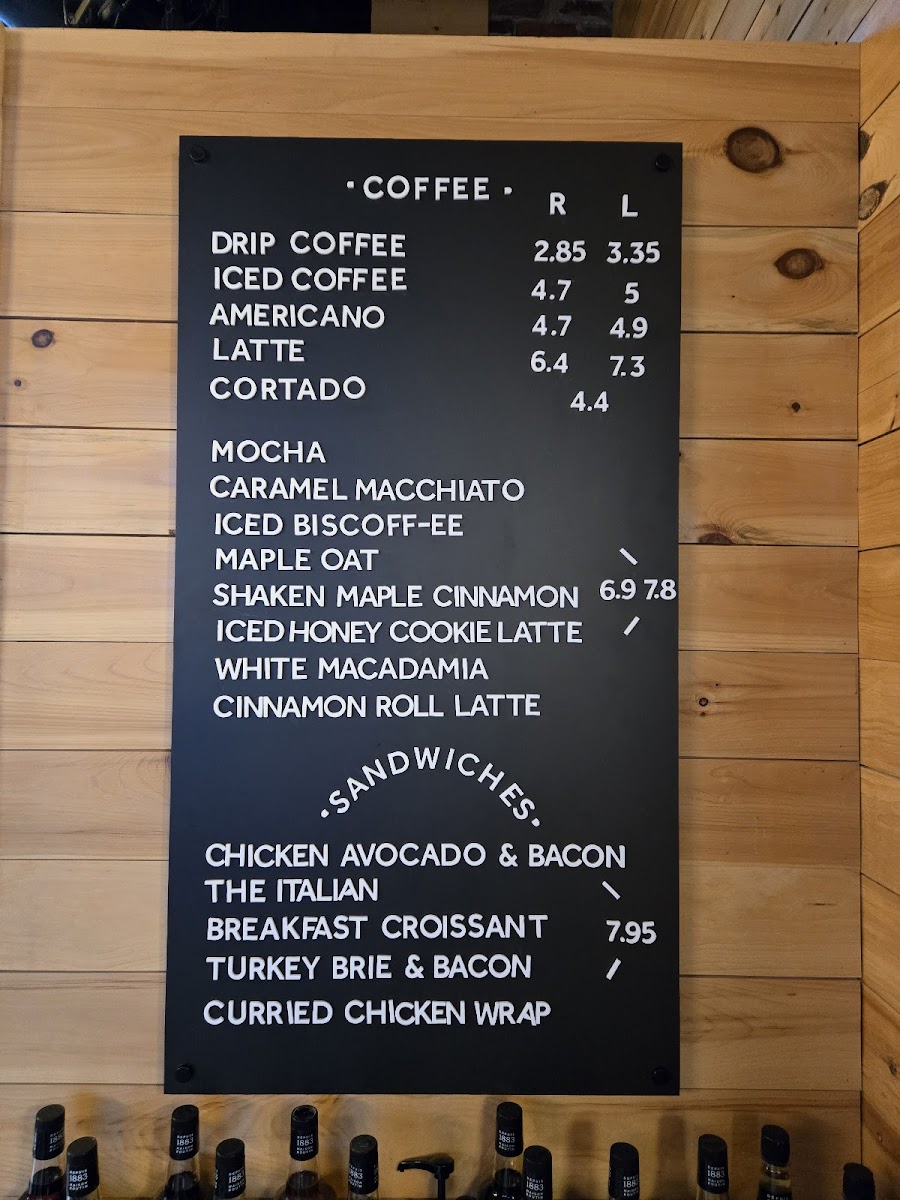 · COFFEE ·
R L
DRIP COFFEE 2.85 3.35
ICED COFFEE 4.7 5
AMERICANO 4.7 4.9
LATTE 6.4 7.3
CORTADO 4.4
MOCHA
CARAMEL MACCHIATO
ICED BISCOFF-EE
MAPLE OAT \
SHAKEN MAPLE CINNAMON 6.9 7.8
ICED HONEY COOKIE LATTE /
WHITE MACADAMIA
CINNAMON ROLL LATTE
·SANDWICHES·
CHICKEN AVOCADO & BACON
THE ITALIAN \
BREAKFAST CROISSANT 7.95
TURKEY BRIE & BACON /
CURRIED CHICKEN WRAP
1883
1883
1883
1883
1883
1883
1883
1883
1883
1883